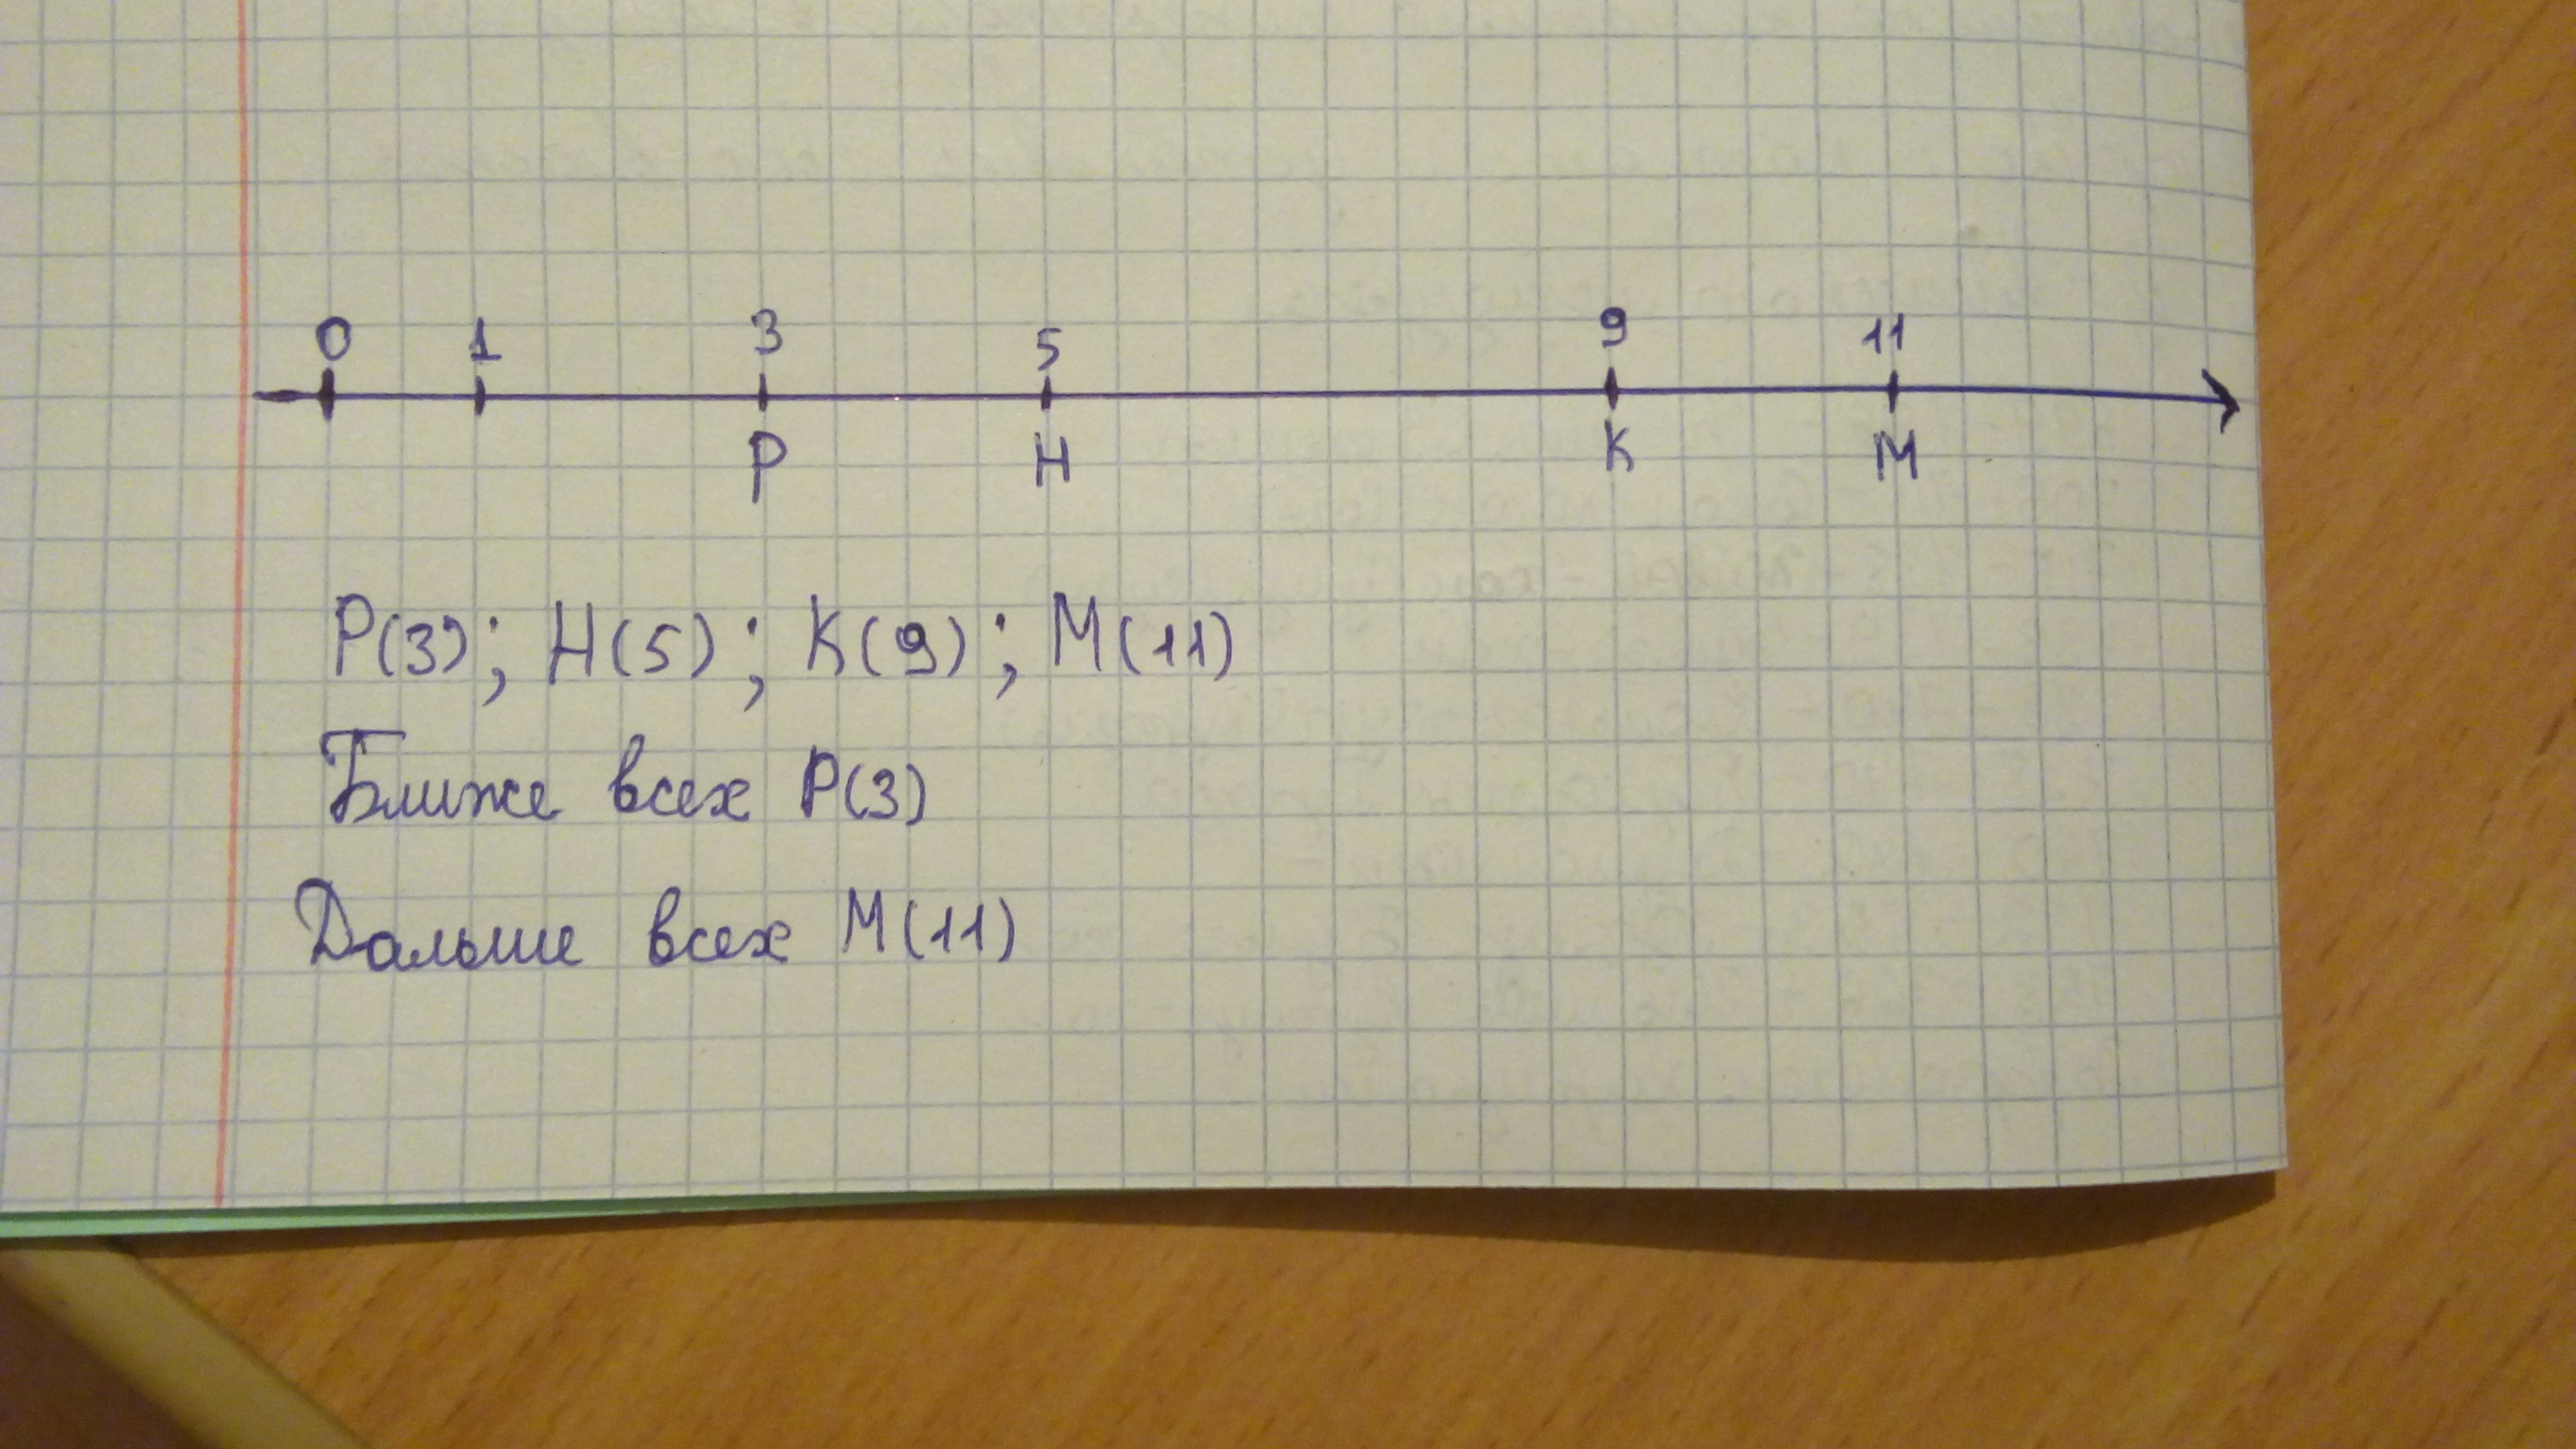 0 1 3 5 9 11
Р Н К М
Р(3); Н(5); К(9); М(11)
Ближе всех Р(3)
Дальше всех М(11)